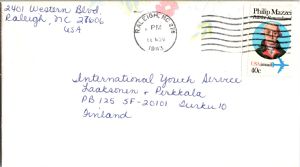 2401 Western Blvd.
Raleigh, NC 27606
USA
RALEIGH, NC 276
PM
1983
Philip Mazzei
Patriot Remembered
USAirmail
40c
International Youth Service
Laaksonen + Perkkala
PB 125 SF-20101 Turku 10
Finland